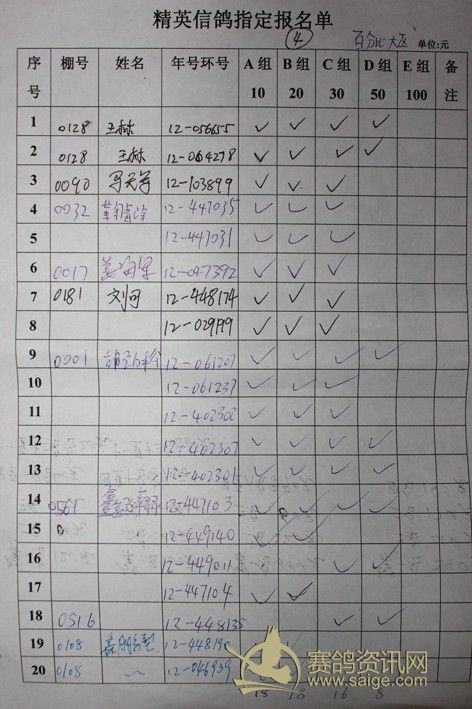 精英信鸽指定报名单
④ 百分比大区 单位:元
序号 棚号 姓名 年号环号 A 组 10 B 组 20 C 组 30 D 组 50 E 组 100 备注
1 0128 王林 12-056655 ✓ ✓ ✓ ✓
2 0128 王林 12-064278 ✓ ✓ ✓ ✓
3 0090 12-103899 ✓ ✓ ✓
4 0032 12-447035 ✓ ✓ ✓
5 12-447031 ✓ ✓ ✓
6 0017 12-047392 ✓ ✓ ✓
7 0181 刘可 12-448174 ✓ ✓ ✓
8 12-029199 ✓ ✓ ✓
9 0001 12-061207 ✓ ✓ ✓ ✓
10 12-061237 ✓ ✓ ✓
11 12-402302 ✓ ✓ ✓
12 12-402307 ✓ ✓ ✓ ✓
13 12-402301 ✓ ✓ ✓ ✓
14 0561 12-447103 ✓ ✓ ✓ ✓
15 12-449140 ✓ ✓
16 12-449011 ✓ ✓
17 12-447104 ✓ ✓
18 0516 12-448135 ✓ ✓
19 0108 12-448190 ✓
20 0108 12-046939
18 18 16 8
赛鸽资讯网
www.saige.com